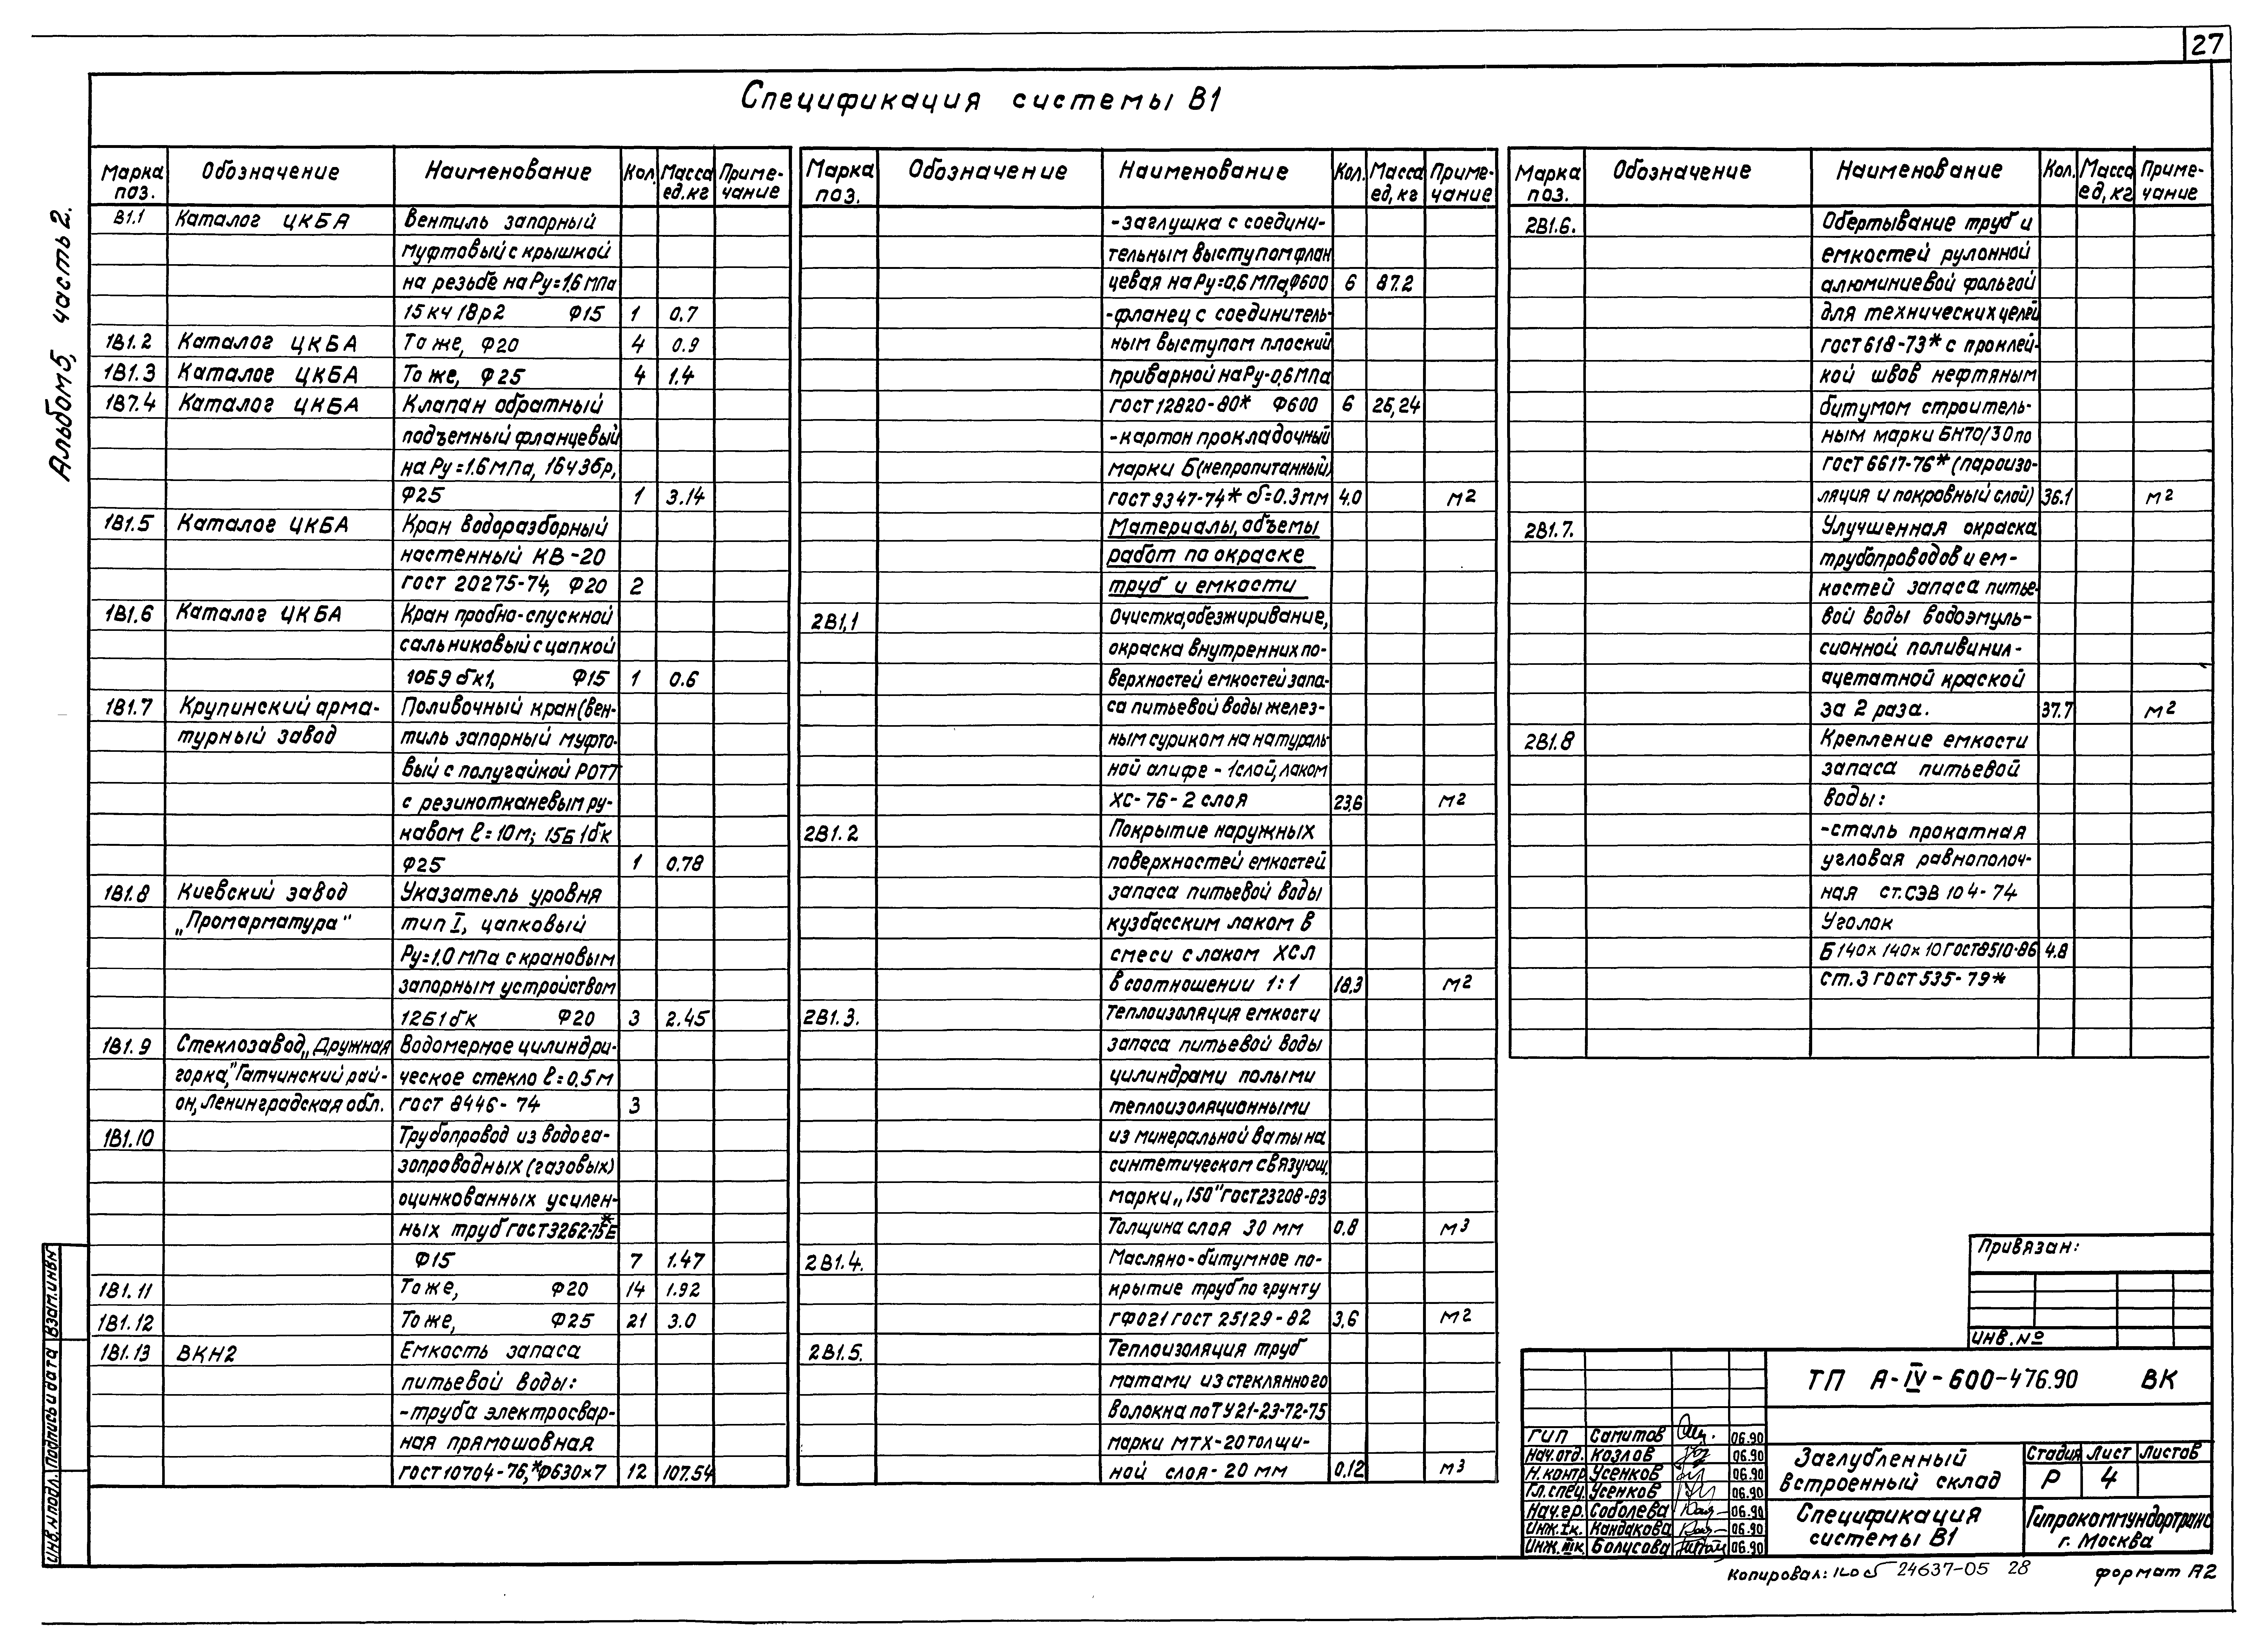 27
Спецификация системы В1
Альбом 5, часть 2.
Марка поз. Обозначение Наименование Кол. Масса ед.кг Примечание
В1.1 Каталог ЦКБА Вентиль запорный
муфтовый с крышкой
на резьбе на Ру=1.6 мПа
15 кч 18р2 Ф15 1 0.7
1В1.2 Каталог ЦКБА То же, Ф20 4 0.9
1В1.3 Каталог ЦКБА То же, Ф25 4 1.4
1В7.4 Каталог ЦКБА Клапан обратный
подъемный фланцевый
на Ру=1.6 мПа, 16ч3бр,
Ф25 1 3.14
1В1.5 Каталог ЦКБА Кран водоразборный
настенный КВ-20
гост 20275-74, Ф20 2
1В1.6 Каталог ЦКБА Кран пробно-спускной
сальниковый с цапкой
10Б9бк1, Ф15 1 0.6
1В1.7 Крупинский арма- Поливочный кран (вен-
турный завод тиль запорный муфто-
вый с полугайкой РОТТ
с резинотканевым ру-
кавом ℓ=10м; 15Б1бк
Ф25 1 0.78
1В1.8 Киевский завод Указатель уровня
„Промарматура" тип I, цапковый
Ру=1.0 мПа с крановым
запорным устройством
12Б1бк Ф20 3 2.45
1В1.9 Стеклозавод „Дружная Водомерное цилиндри-
горка," Гатчинский рай- ческое стекло ℓ=0,5м
он, Ленинградская обл. гост 8446-74 3
1В1.10 Трубопровод из водога-
зопроводных (газовых)
оцинкованных усилен-
ных труб гост 3262-75*Е
Ф15 7 1.47
1В1.11 То же, Ф20 14 1.92
1В1.12 То же, Ф25 21 3.0
1В1.13 ВКН2 Емкость запаса
питьевой воды:
-труба электросвар-
ная прямошовная
гост 10704-76,* Ф630х7 12 107.54
Марка поз. Обозначение Наименование Кол. Масса ед,кг Примечание
-заглушка с соедини-
тельным выступом флан
цевая на Ру=0,6 мПа, Ф600 6 87.2
-фланец с соединитель-
ным выступом плоский
приварной на Ру-0,6 мПа
гост 12820-80* Ф600 6 25,24
-картон прокладочный
марки Б (непропитанный)
гост 9347-74* δ=0.3мм 4.0 м2
Материалы, объемы
работ по окраске
труб и емкости
2В1,1 Очистка, обезжиривание,
окраска внутренних по-
верхностей емкостей запа-
са питьевой воды желез-
ным суриком на натураль-
ной олифе - 1слой, лаком
ХС-76-2 слоя 23,6 м2
2В1.2 Покрытие наружных
поверхностей емкостей
запаса питьевой воды
кузбасским лаком в
смеси с лаком ХСЛ
в соотношении 1:1 18,3 м2
2В1.3. Теплоизоляция емкости
запаса питьевой воды
цилиндрами полыми
теплоизоляционными
из минеральной ваты на
синтетическом связующ.
марки „150" гост 23208-83
Толщина слоя 30 мм 0,8 м3
2В1.4. Масляно-битумное по-
крытие труб по грунту
ГФ021 гост 25129-82 3,6 м2
2В1.5. Теплоизоляция труб
матами из стеклянного
волокна по ТУ 21-23-72-75
марки МТХ-20 толщи-
ной слоя-20 мм 0,12 м3
Марка поз. Обозначение Наименование Кол. Масса ед,кг Примечание
2В1.6. Обертывание труб и
емкостей рулонной
алюминиевой фольгой
для технических целей
гост 618-73* с проклей-
кой швов нефтяным
битумом строитель-
ным марки БН70/30 по
гост 6617-76* (пароизо-
ляция и покровный слой) 36.1 м2
2В1.7. Улучшенная окраска
трубопроводов и ем-
костей запаса питье-
вой воды водоэмуль-
сионной поливинил-
ацетатной краской
за 2 раза. 37.7 м2
2В1.8 Крепление емкости
запаса питьевой
воды:
-сталь прокатная
угловая равнополоч-
ная ст.СЭВ 104-74
Уголок
Б 140х140х10 гост 8510-86 4.8
ст.3 гост 535-79*
Привязан:
инв. №
ТП А-IV-600-476.90 ВК
гип Самитов 06.90
Нач.отд. Козлов 06.90
Н.контр Усенков 06.90
Гл.спец. Усенков 06.90
Нач.гр. Соболева 06.90
Инж.Iк. Кандакова 06.90
Инж.IIIк. Болусова 06.90
Заглубленный
встроенный склад
Стадия Лист Листов
Р 4
Спецификация
системы В1
Гипрокоммундортранс
г. Москва
Копировал: 24637-05 28 формат А2
Инв.№подл. Подпись и дата Взам.инв№